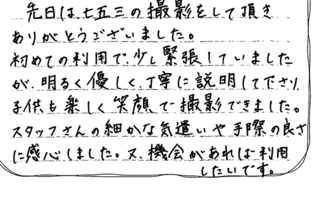 先日は七五三の撮影をして頂き
ありがとうございました。
初めての利用で、少し緊張していました
が、明るく優しく、丁寧に説明して下さり
子供も楽しく笑顔で撮影できました。
スタッフさんの細かな気遣いや手際の良さ
に感心しました。又、機会があれば利用
したいです。